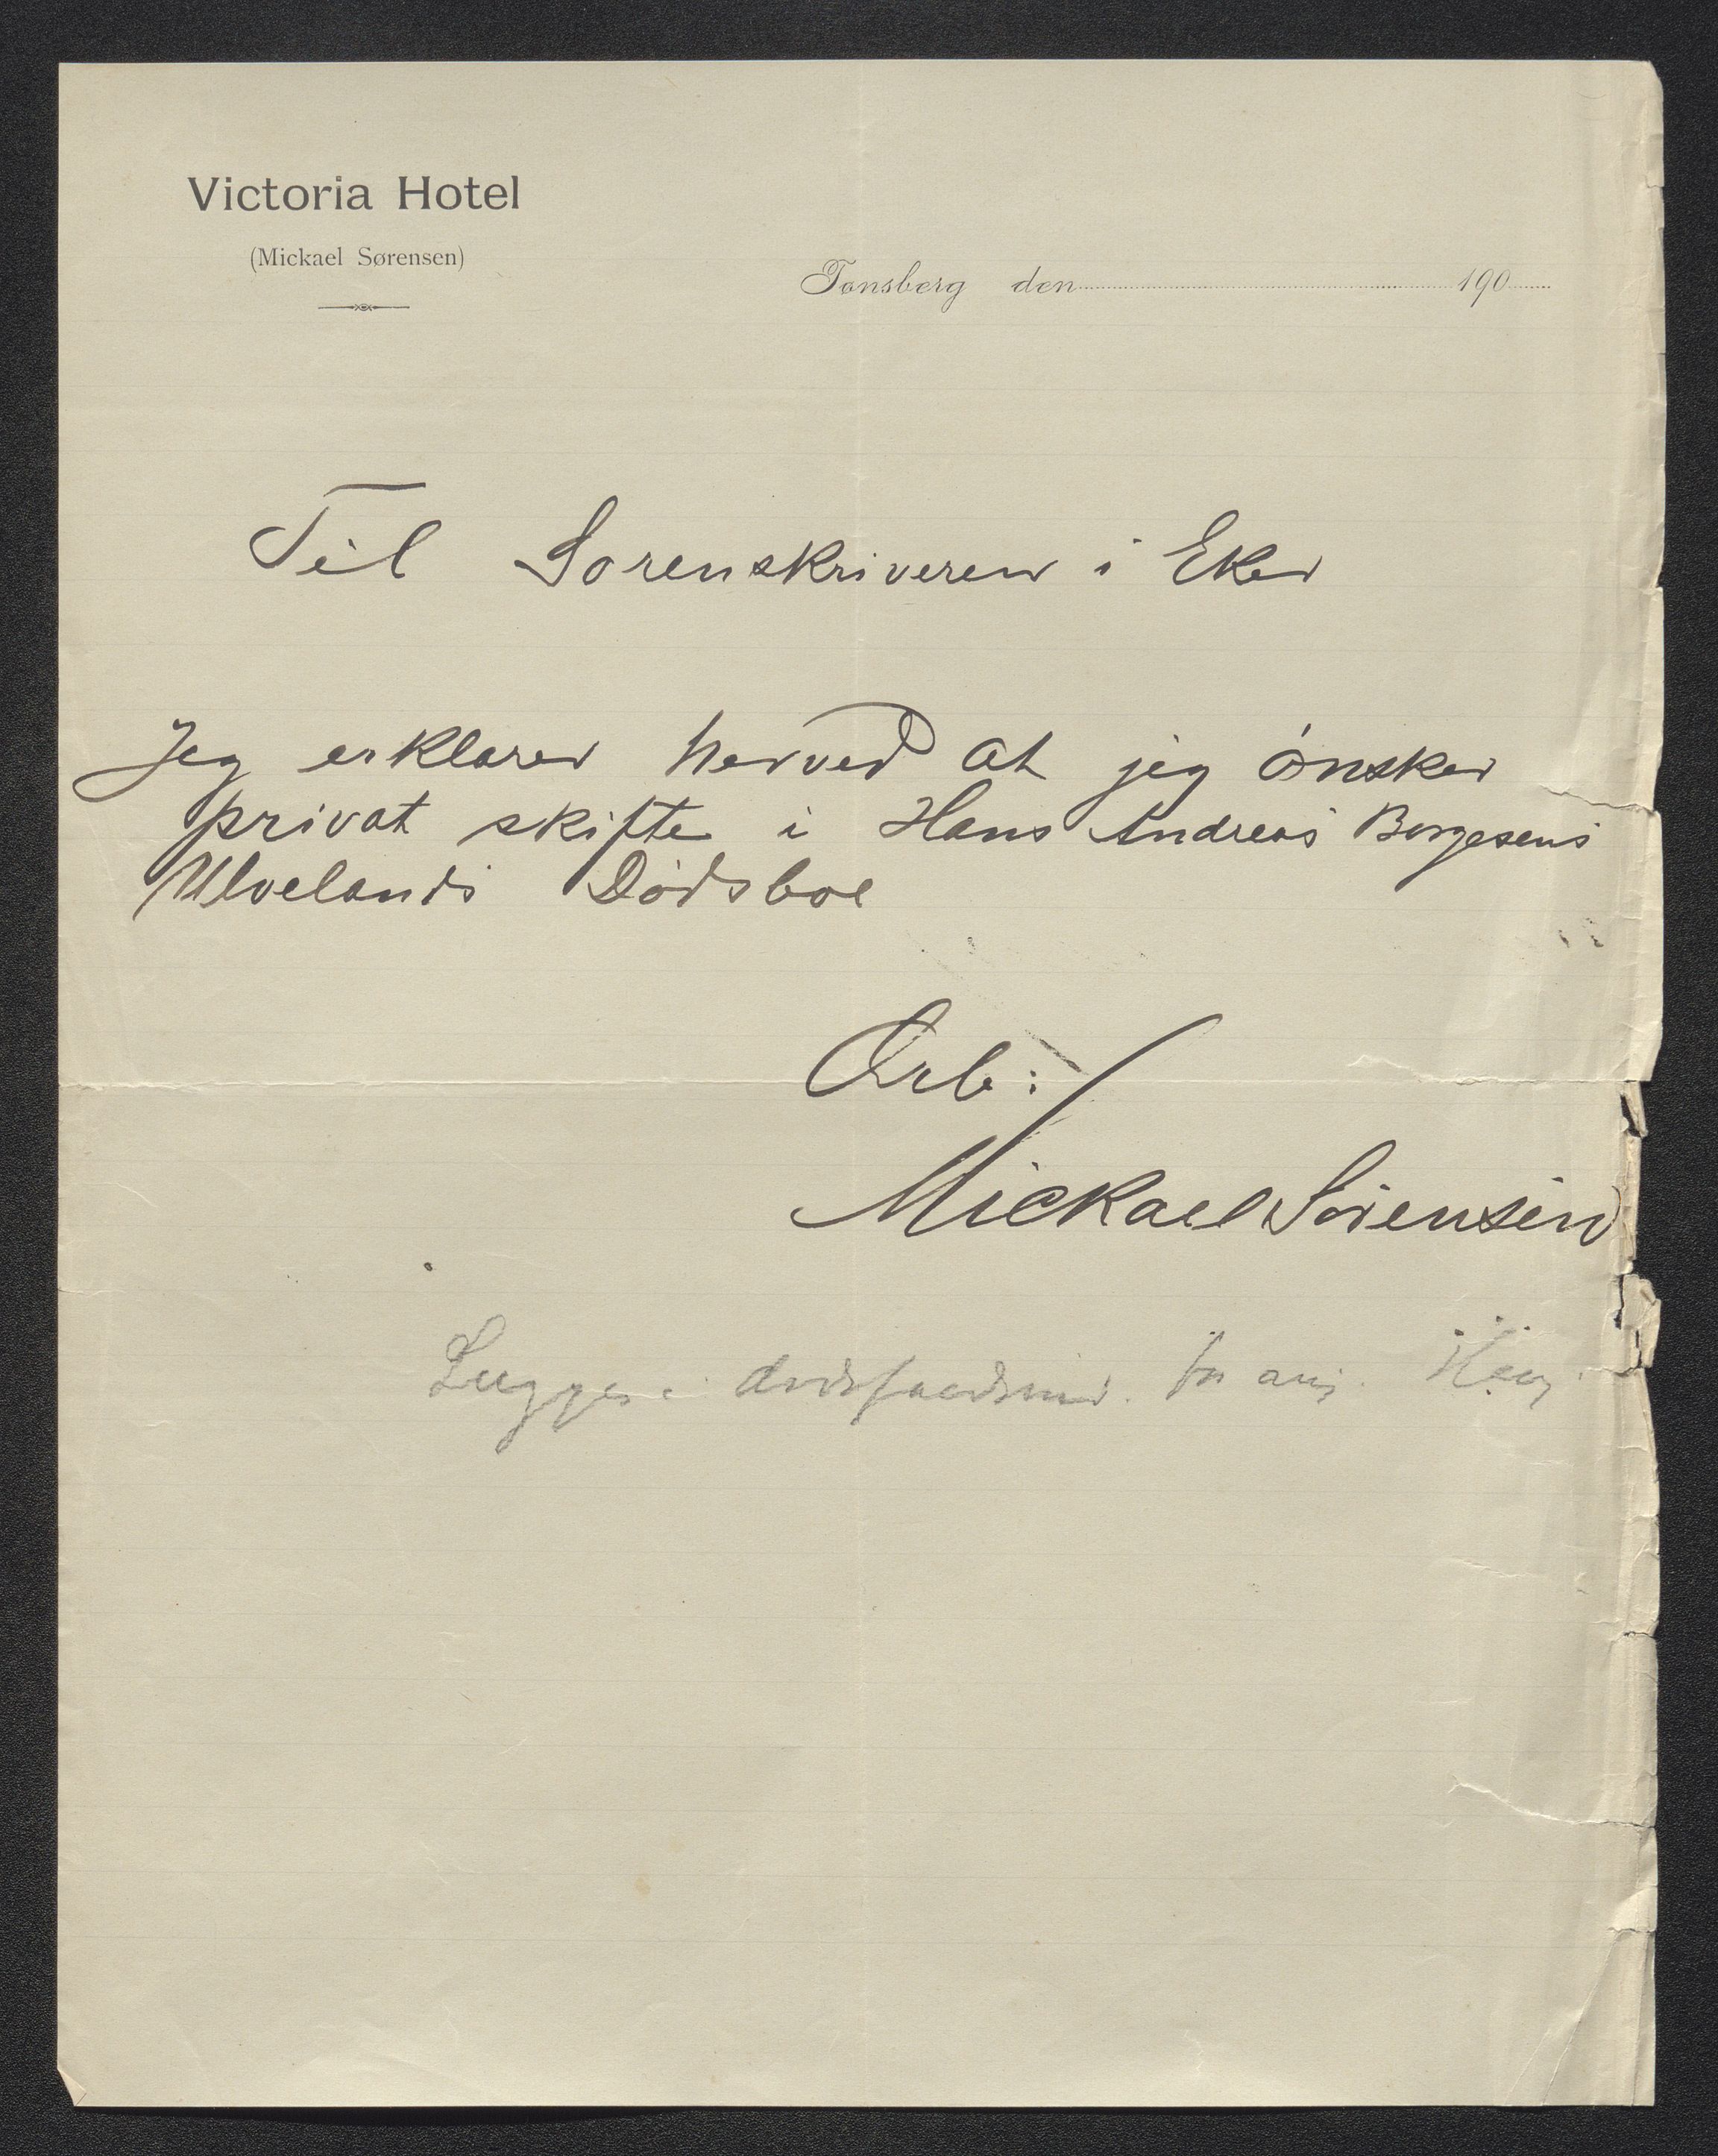 Victoria Hotel
(Mickael Sørensen)
Tønsberg den 190
Til Sorenskriveren i Eker
Jeg erklarer herved at jeg ønsker
privat skifte i Hans Andreas Borgesens
Ulvelands Dødsboe
Ærb:
Mickael Sørensen
Lægges i dødsfaldsmd. for